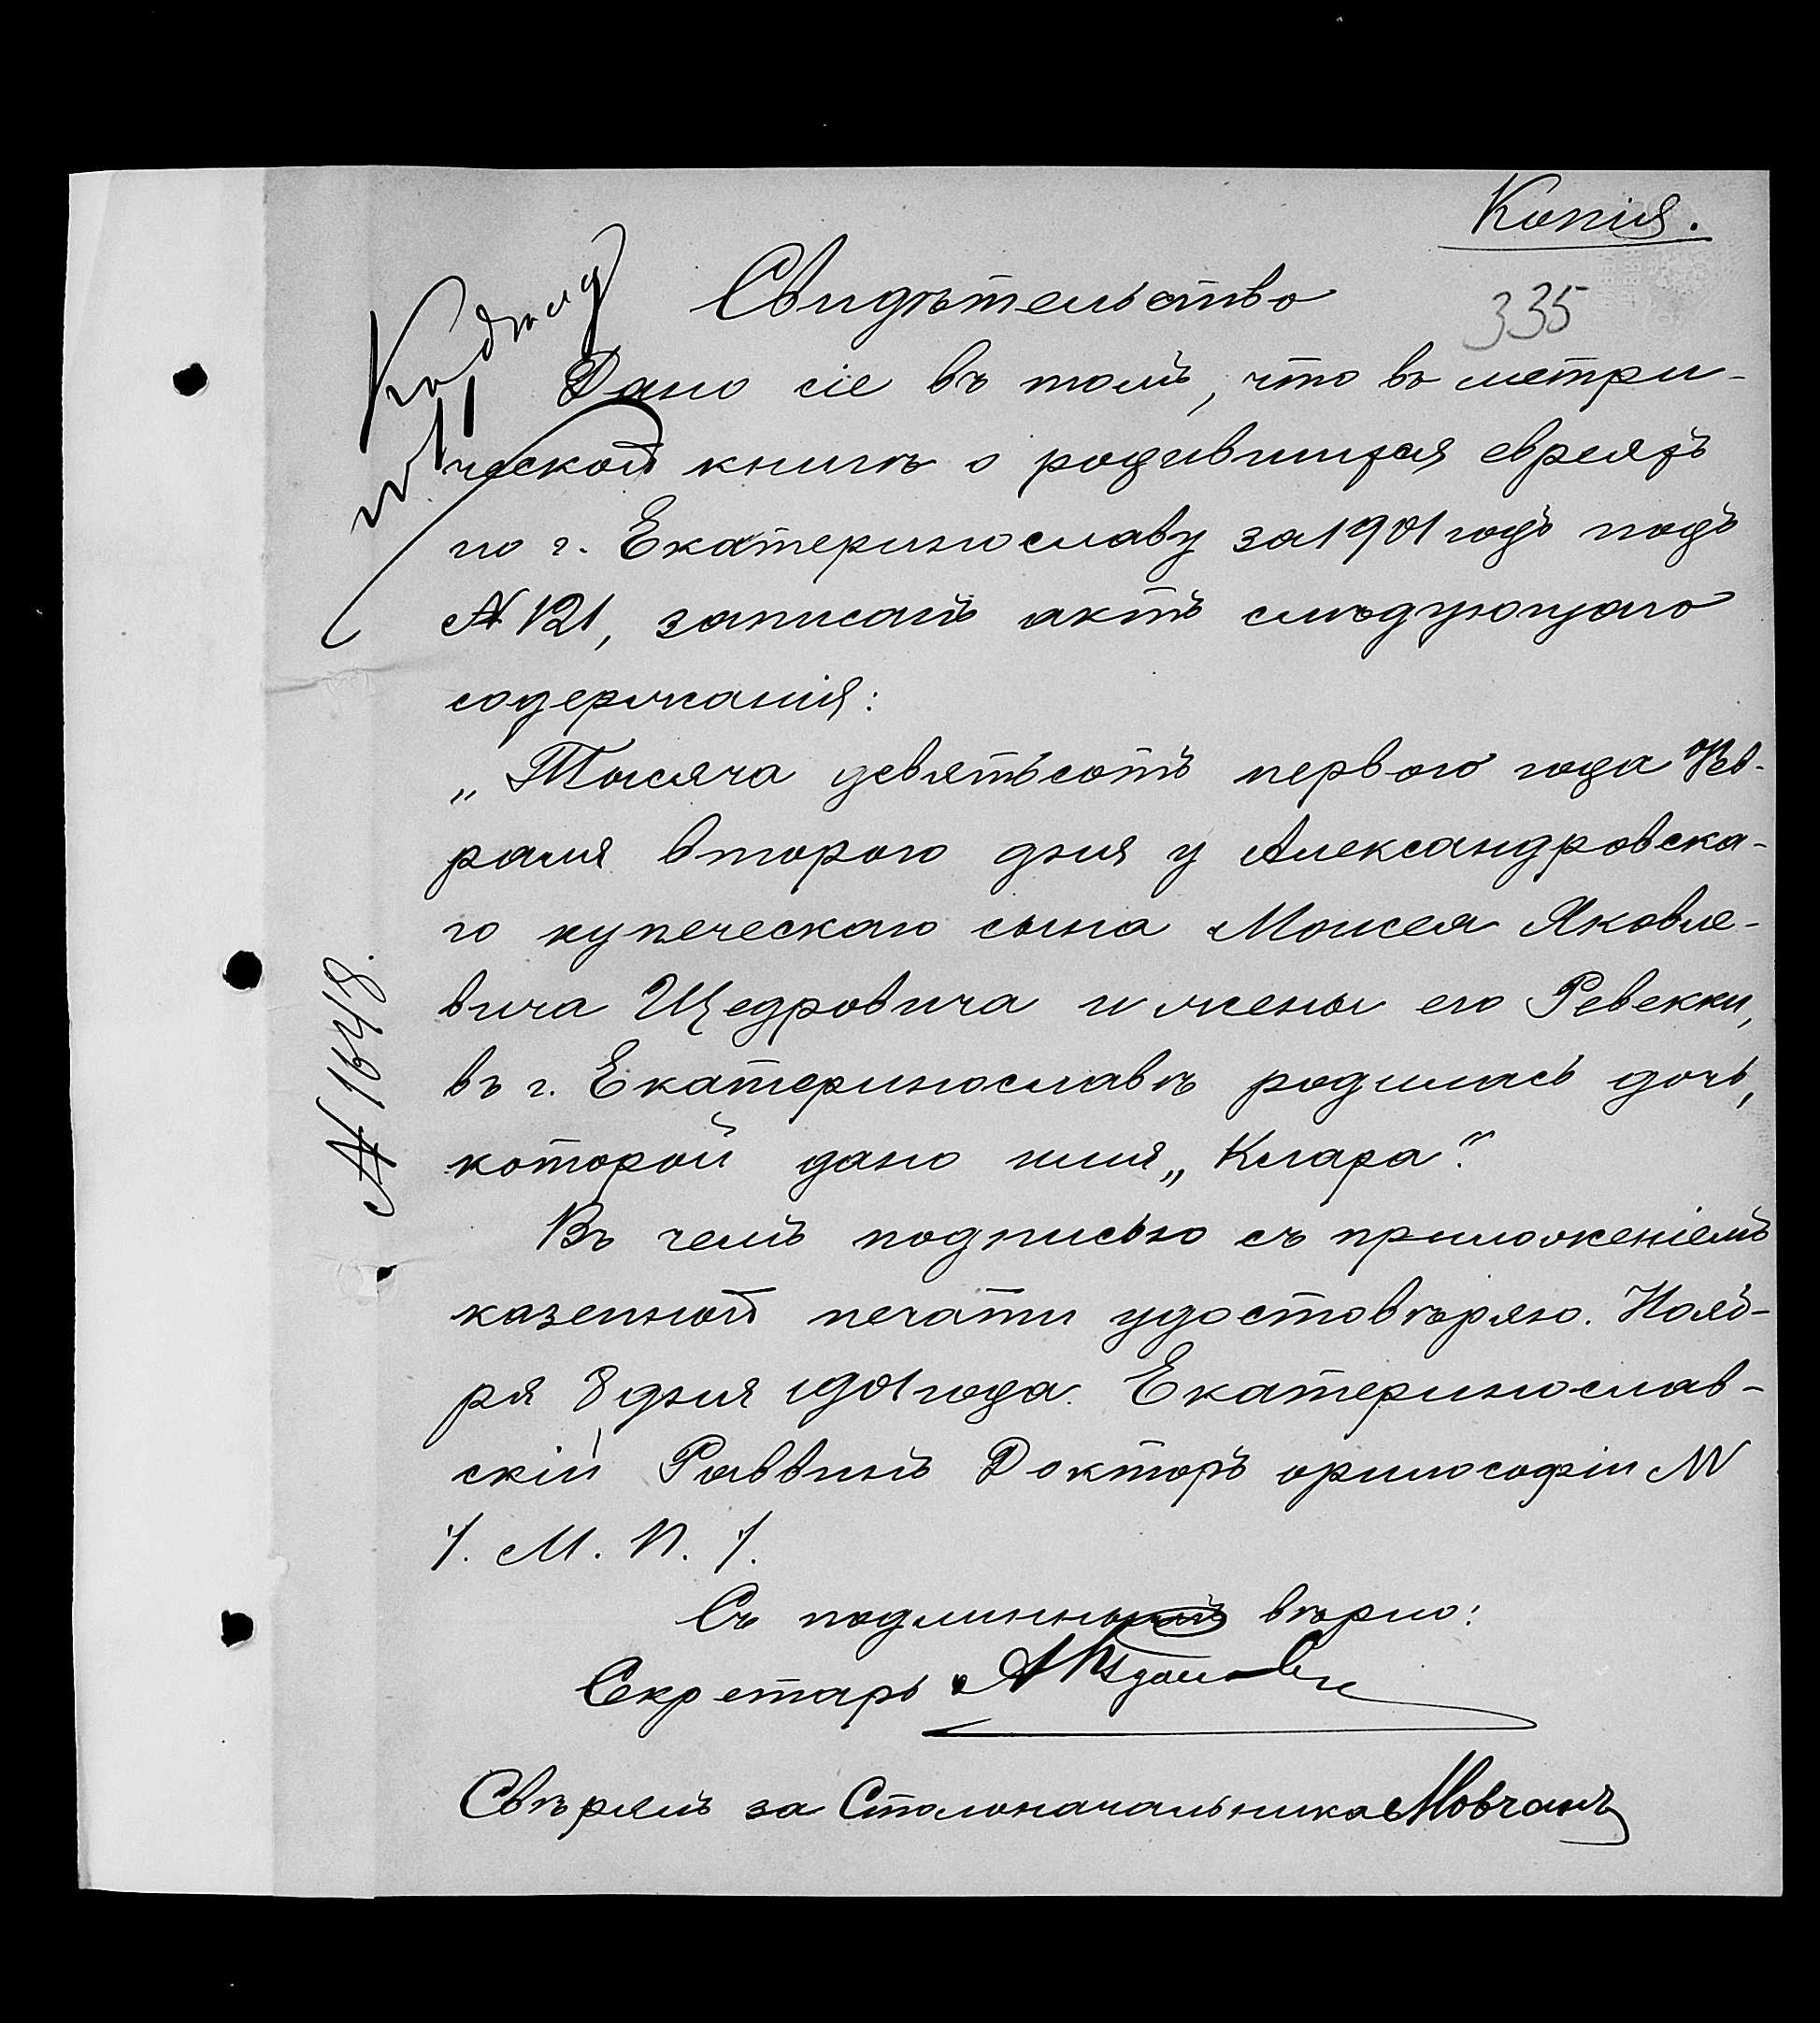 Копія.
335
Свидѣтельство
Дано сіе въ томъ, что въ метри-
ческой книгѣ о родившихся евреяхъ
по г. Екатеринославу за 1901 годъ подъ
№ 121, записанъ актъ слѣдующаго
содержанія:
„Тысяча девятьсотъ перваго года Фев-
раля второго дня у Александровска-
го купеческаго сына Моисея Яковле-
вича Щедровича и жены его Ревекки,
въ г. Екатеринославѣ родилась дочь,
которой дано имя „Клара“.
Въ чемъ подписью съ приложеніемъ
казенной печати удостовѣряю. Нояб-
ря 8 дня 1901 года. Екатеринослав-
скій Раввинъ Докторъ философіи
/. М. П. /.
Съ подлиннымъ вѣрно:
Секретарь
Свѣрялъ за Столоначальника Мовчанъ
№ 1648.